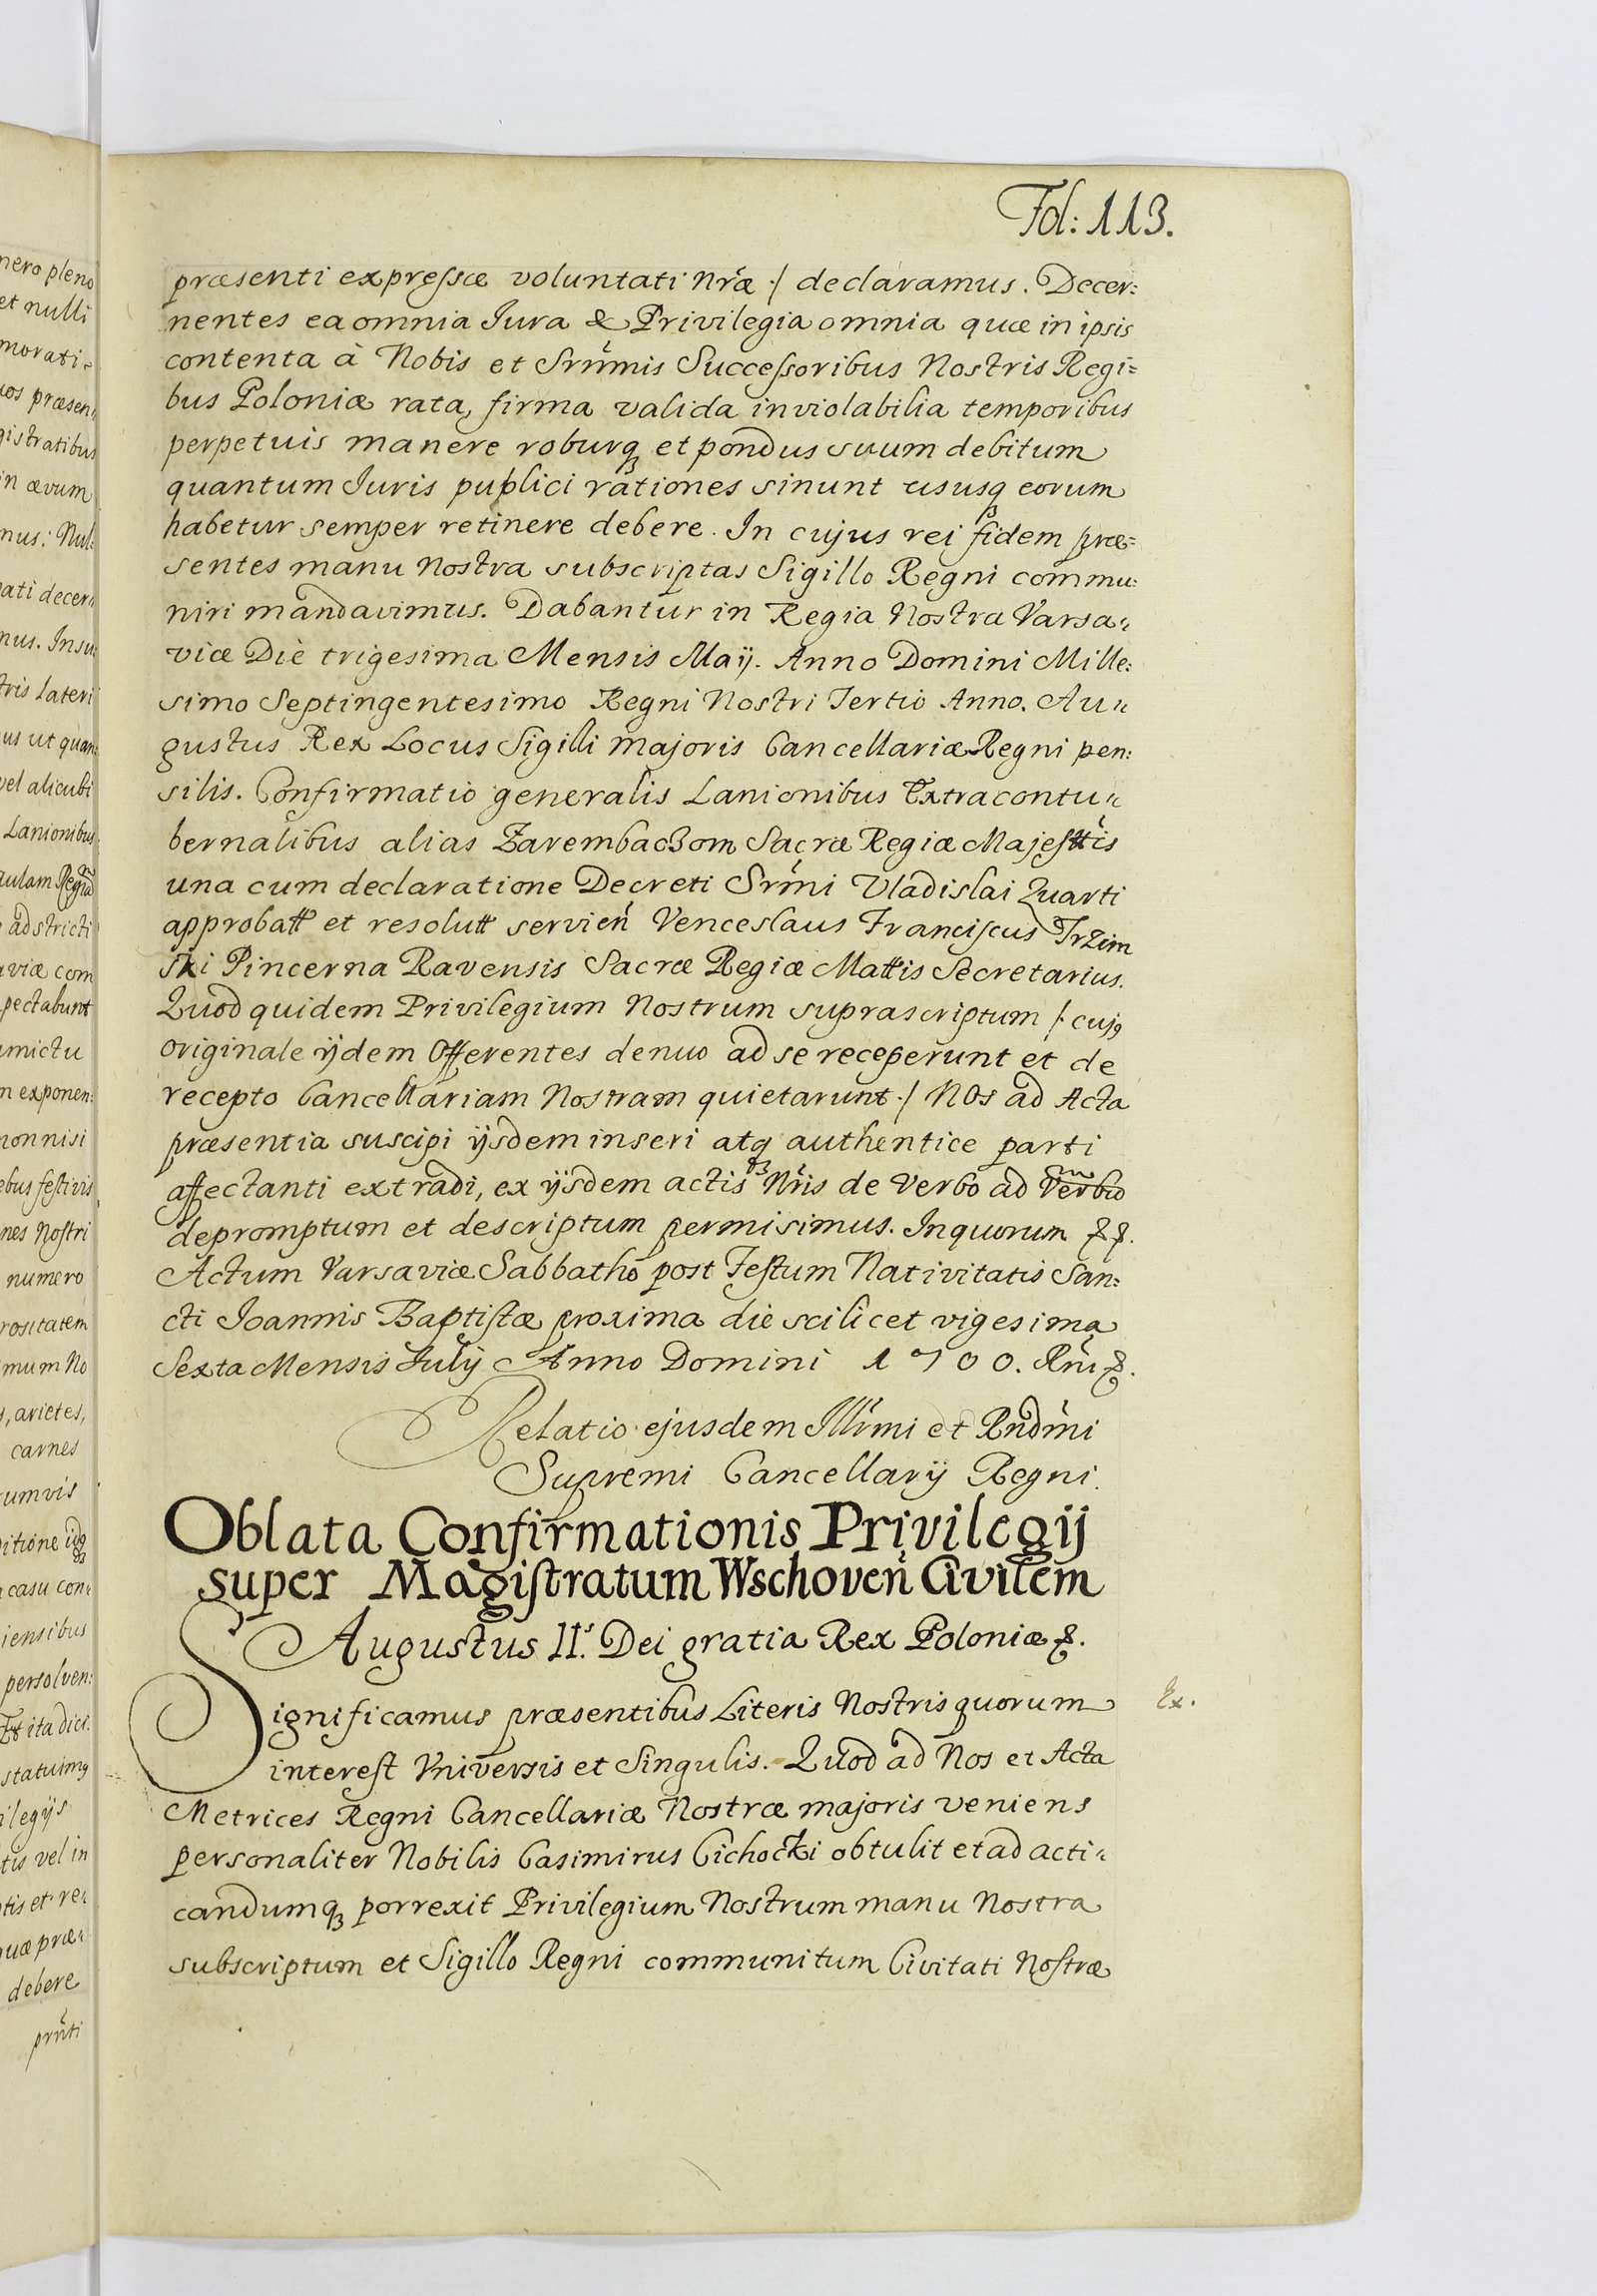 Fol: 113.
præsenti expressæ voluntati nr̃æ ·/ declaramus. Decer:
nentes ea omnia Iura & Privilegia omnia quæ in ipsis
contenta à Nobis et Srñmis Successoribus Nostris Regi=
bus Poloniæ rata, firma valida inviolabilia temporibus
perpetuis manere roburqꝫ et pondus suum debitum
quantum Iuris puplici rationes sinunt ususqꝫ eorum
habetur semper retinere debere. In cujus rei fidem præ=
sentes manu Nostra subscriptas Sigillo Regni commu:
niri mandavimus. Dabantur in Regia Nostra Varsa„
viæ Die trigesima Mensis Maij. Anno Domini Mille:
simo Septingentesimo Regni Nostri Tertio Anno. Au„
gustus Rex Locus Sigilli majoris Cancellariæ Regni pen:
silis. Confirmatio generalis Lanionibus Extracontu„
bernalibus alias Zarembaczom Sacræ Regiæ Majesttis
una cum declaratione Decreti Srm̃i Vladislai Quarti
approbatt et resolutt servieñ Venceslaus Franciscus Trzim
ski Pincerna Ravensis Sacræ Regiæ Mattis Secretarius.
Quod quidem Privilegium Nostrum suprascriptum /: cujꝰ
originale ijdem Offerentes denuo ad se receperunt et de
recepto Cancellariam Nostram quietarunt ·/ Nos ad Acta
præsentia suscipi ijsdem inseri atqꝫ authentice parti
affectanti extradi, ex ijsdem actis Nr̃is de Verbo ad Verbũ
depromptum et descriptum permisimus. In quorum &&.
Actum Varsaviæ Sabbatho post Festum Nativitatis San:
cti Ioannis Baptistæ proxima die scilicet vigesima
Sexta Mensis Iulij Anno Domini 1700. Rñi &.
Relatio ejusdem Illr̃mi et Rndm̃i
Supremi Cancellarij Regni.
Oblata Confirmationis Privilegij
super Magistratum Wschoveñ Civilem
Augustus II.s Dei gratia Rex Poloniæ &.
Significamus præsentibus Literis Nostris quorum
Ex.
interest Vniversis et Singulis. Quod ad Nos et Acta
Metrices Regni Cancellariæ Nostræ majoris veniens
personaliter Nobilis Casimirus Cichocki obtulit et ad acti„
candumqꝫ porrexit Privilegium Nostrum manu Nostra
subscriptum et Sigillo Regni communitum Civitati Nostræ